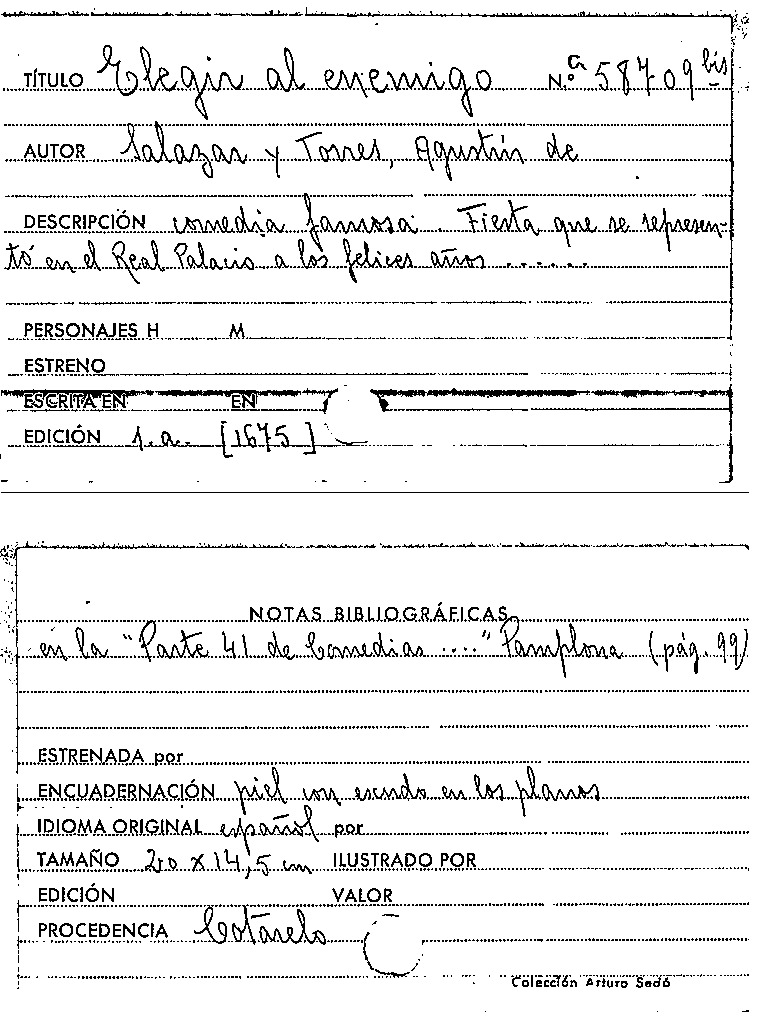 TÍTULO Elegir al enemigo N.º Cª 58709 bis
AUTOR Salazar y Torres, Agustín de
DESCRIPCIÓN comedia famosa. Fiesta que se represen-
tó en el Real Palacio a los felices años ......
PERSONAJES H M
ESTRENO
ESCRITA EN EN
EDICIÓN s.a. [1675]
NOTAS BIBLIOGRÁFICAS
en la "Parte 41 de Comedias ...." Pamplona (pág. 99)
ESTRENADA por
ENCUADERNACIÓN piel con escudo en los planos
IDIOMA ORIGINAL español por
TAMAÑO 20 x 14,5 cm ILUSTRADO POR
EDICIÓN VALOR
PROCEDENCIA Cotarelo
Colección Arturo Sedó